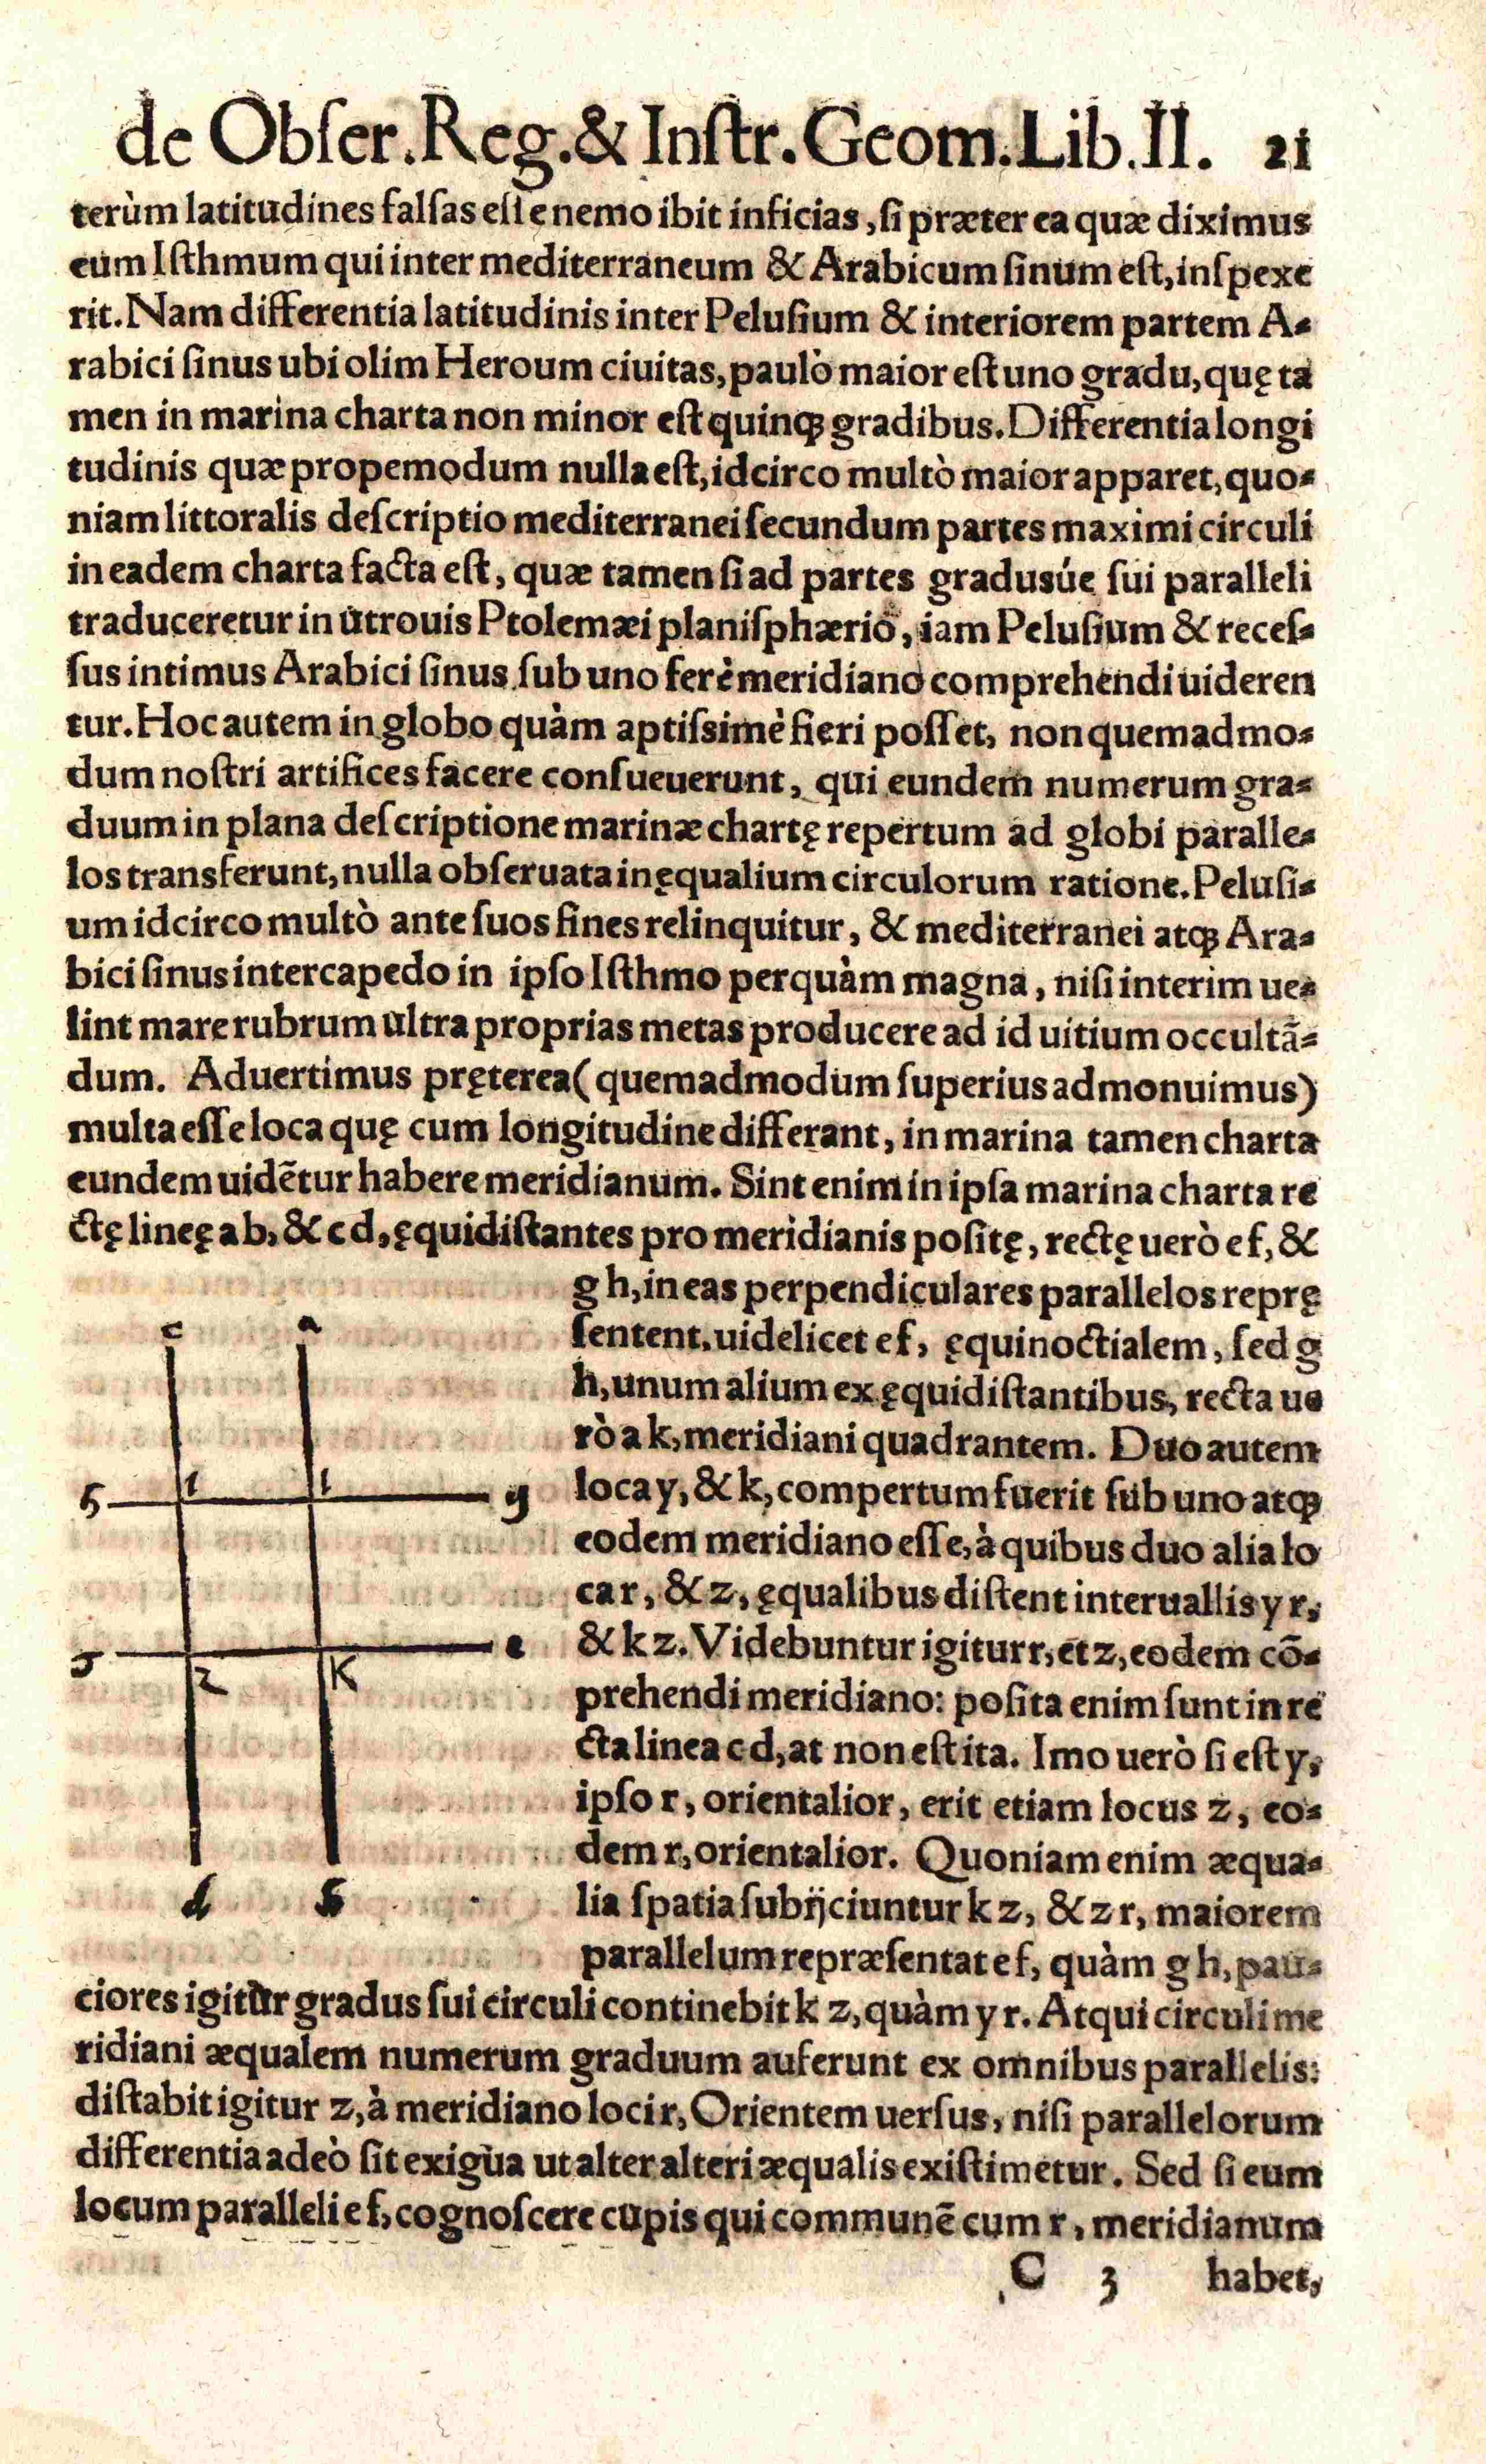 de Obſer.Reg.& Inſtr.Geom.Lib.II. 21
terùm latitudines falſas eſſe nemo ibit inficias, ſi præter ea quæ diximus
eum Iſthmum qui inter mediterraneum & Arabicum ſinum eſt, inſpexe
rit. Nam differentia latitudinis inter Peluſium & interiorem partem A-
rabici ſinus ubi olim Heroum ciuitas, paulò maior eſt uno gradu, quę ta
men in marina charta non minor eſt quinqꝫ gradibus. Differentia longi
tudinis quæ propemodum nulla eſt, idcirco multò maior apparet, quo-
niam littoralis deſcriptio mediterranei ſecundum partes maximi circuli
in eadem charta facta eſt, quæ tamen ſi ad partes gradusúe ſui paralleli
traduceretur in utrouis Ptolemæi planiſphærio, iam Peluſium & receſ-
ſus intimus Arabici ſinus ſub uno ferè meridiano comprehendi uideren
tur. Hoc autem in globo quàm aptiſsimè fieri poſſet, non quemadmo-
dum noſtri artifices facere conſueuerunt, qui eundem numerum gra-
duum in plana deſcriptione marinæ chartę repertum ad globi paralle-
los transferunt, nulla obſeruata inęqualium circulorum ratione. Peluſi-
um idcirco multò ante ſuos fines relinquitur, & mediterranei atqꝫ Ara-
bici ſinus intercapedo in ipſo Iſthmo perquàm magna, niſi interim ue-
lint mare rubrum ultra proprias metas producere ad id uitium occultā-
dum. Aduertimus pręterea (quemadmodum ſuperius admonuimus)
multa eſſe loca quę cum longitudine differant, in marina tamen charta
eundem uidētur habere meridianum. Sint enim in ipſa marina charta re
ctę lineę a b, & c d, ęquidiſtantes pro meridianis poſitę, rectę uerò e f, &
g h, in eas perpendiculares parallelos reprę
ſentent. uidelicet e f, ęquinoctialem, ſed g
h, unum alium ex ęquidiſtantibus, recta ue
rò a k, meridiani quadrantem. Duo autem
loca y, & k, compertum fuerit ſub uno atqꝫ
eodem meridiano eſſe, à quibus duo alia lo
ca r, & z, ęqualibus diſtent interuallis y r,
& k z. Videbuntur igitur r, et z, eodem cō-
prehendi meridiano: poſita enim ſunt in re
cta linea c d, at non eſt ita. Imo uerò ſi eſt y,
ipſo r, orientalior, erit etiam locus z, eo-
dem r, orientalior. Quoniam enim æqua-
lia ſpatia ſubijciuntur k z, & z r, maiorem
parallelum repræſentat e f, quàm g h, pau-
c a
g
e
z K
d
ciores igitur gradus ſui circuli continebit k z, quàm y r. Atqui circuli me
ridiani æqualem numerum graduum auferunt ex omnibus parallelis:
diſtabit igitur z, à meridiano loci r, Orientem uerſus, niſi parallelorum
differentia adeò ſit exigùa ut alter alteri æqualis exiſtimetur. Sed ſi eum
locum paralleli e f, cognoſcere cupis qui communē cum r, meridianum
C 3 habet,